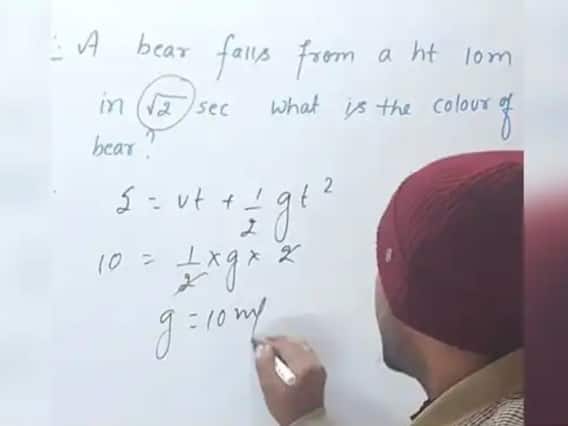 :- A bear falls from a ht 10m
in √2 sec what is the colour of
bear?
S = ut + 1/2 gt²
10 = 1/2 × g × 2
g = 10 m/